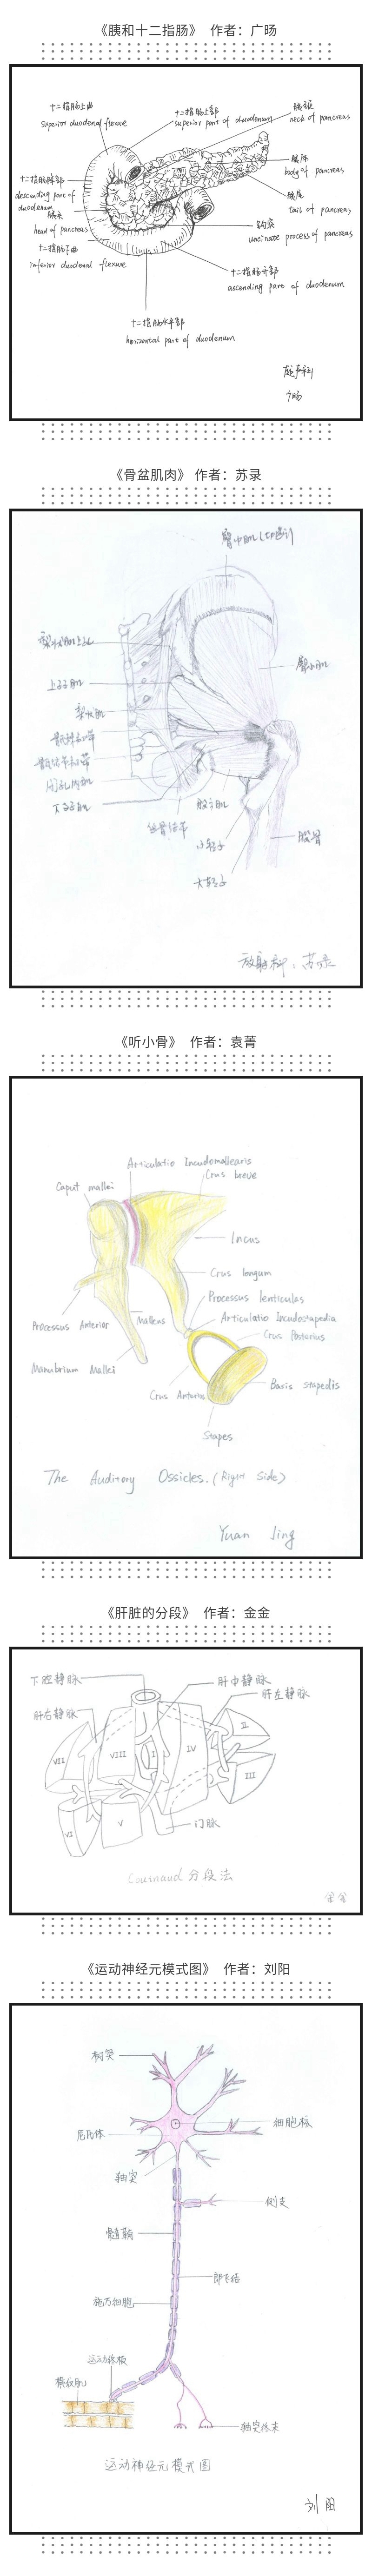 《胰和十二指肠》 作者：广旸
十二指肠上曲
superior duodenal flexure
十二指肠上部
superior part of duodenum
胰颈
neck of pancreas
胰体
body of pancreas
十二指肠降部
descending part of
duodenum
胰尾
tail of pancreas
胰头
head of pancreas
钩突
uncinate process of pancreas
十二指肠下曲
inferior duodenal flexure
十二指肠升部
ascending part of duodenum
十二指肠水平部
horizontal part of duodenum
广旸
《骨盆肌肉》 作者：苏录
梨状肌上孔
臀小肌
上孖肌
梨状肌
骶棘韧带
骶结节韧带
闭孔内肌
下孖肌
股方肌
坐骨结节
小转子
股骨
大转子
放射科：苏录
《听小骨》 作者：袁菁
Articulatio Incudomallearis
Crus breve
Caput mallei
Incus
Crus longum
Processus lenticulas
Articulatio Incudostapedia
Processus Anterior
Malleus
Crus Posterius
Manubrium Mallei
Crus Anterius
Basis stapedis
Stapes
The Auditory Ossicles. (Right Side)
Yuan Jing
《肝脏的分段》 作者：金金
下腔静脉
肝中静脉
肝左静脉
肝右静脉
II
VII
VIII
I
IV
III
VI
V
门脉
Couinaud 分段法
金金
《运动神经元模式图》 作者：刘阳
树突
细胞核
尼氏体
轴突
侧支
髓鞘
郎飞结
施万细胞
运动终板
横纹肌
轴突终末
运动神经元模式图
刘阳